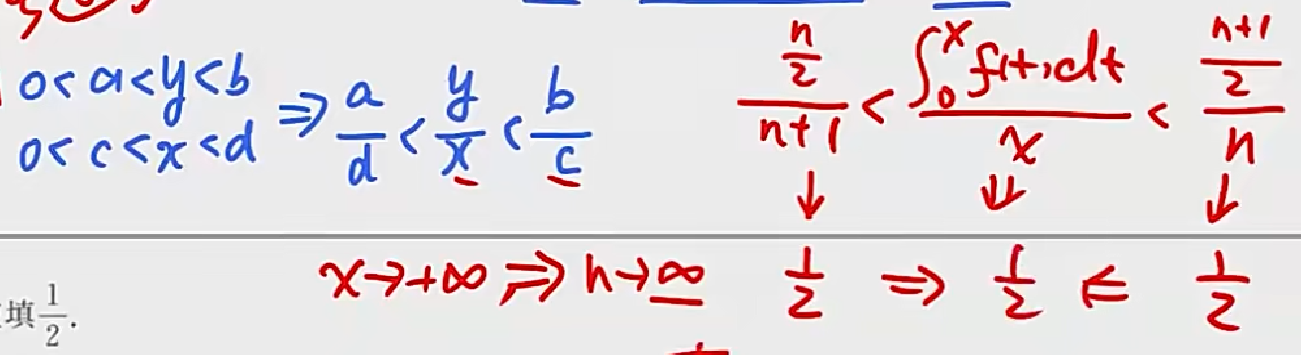 0<a<y<b
0<c<x<d
⇒ a/d < y/x < b/c
(n/2)/(n+1) < ∫₀ˣ f(t)dt / x < ((n+1)/2)/n
↓ ⇓ ↓
x→+∞ ⇒ n→∞ 1/2 ⇒ 1/2 ⇐ 1/2
填 1/2.